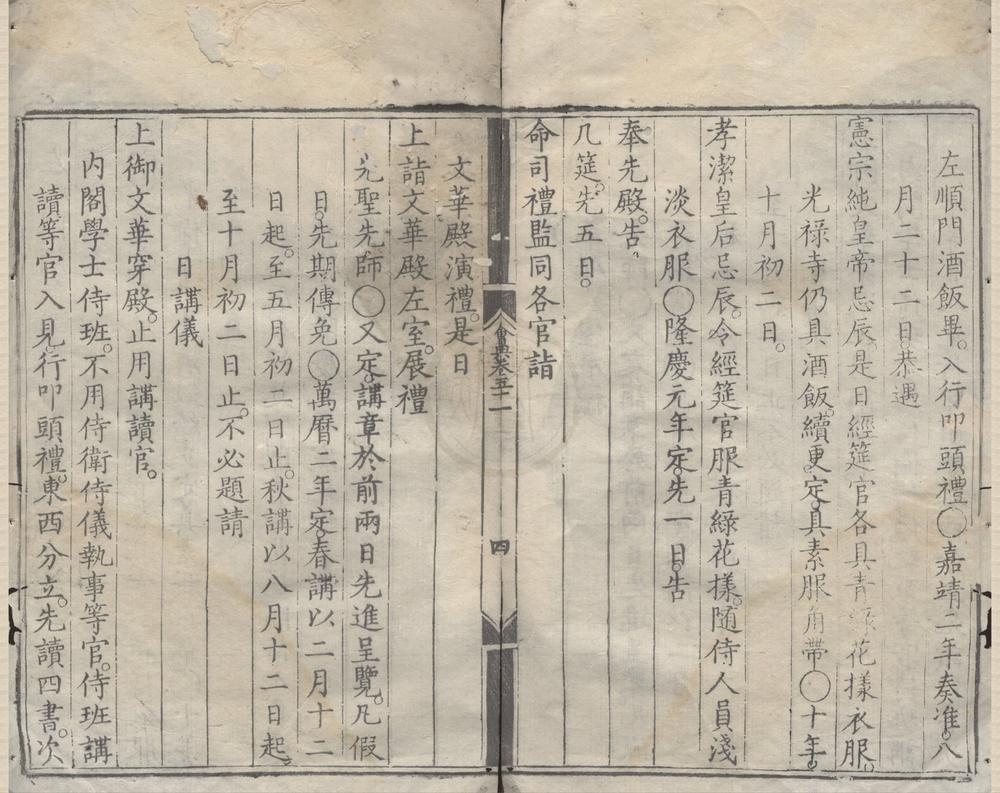 左順門酒飯畢。入行叩頭禮〇嘉靖二年奏准。八
月二十二日。恭遇
憲宗純皇帝忌辰是日經筵官各具青綠花樣衣服。
光祿寺仍具酒飯。續更定。具素服角帶〇十年。
十月初二日。
孝潔皇后忌辰。令經筵官服青綠花樣。隨侍人員淺
淡衣服〇隆慶元年定。先一日。告
奉先殿。告
几筵。先五日。
命司禮監同各官詣
會典卷五十二
四
文華殿演禮。是日
上詣文華殿左室。展禮
先聖先師〇又定。講章於前兩日先進呈覽。凡假
日。先期傳免〇萬曆二年定。春講以二月十二
日起。至五月初二日止。秋講以八月十二日起。
至十月初二日止。不必題請
日講儀
上御文華穿殿。止用講讀官。
內閣學士侍班。不用侍衛侍儀執事等官。侍班講
讀等官入見。行叩頭禮。東西分立。先讀四書。次